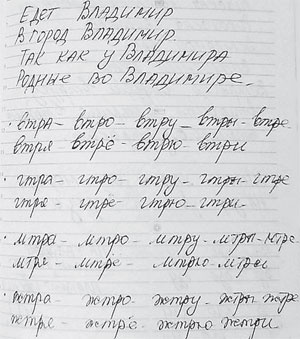 ЕДЕТ ВЛАДИМИР
В ГОРОД ВЛАДИМИР
ТАК КАК У ВЛАДИМИРА
РОДНЫЕ ВО ВЛАДИМИРЕ.
· втра - втро - втру - втры - втре
втря втрё - втрю - втри
· гтра - гтро - гтру - гтры - гтре
гтря - гтрё - гтрю - гтри
· мтра - мтро - мтру - мтры - мтре
мтря - мтрё - мтрю - мтри
· жтра - жтро - жтру - жтры - жтре
жтря - жтрё - жтрю жтри